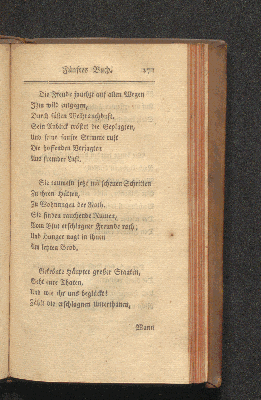 Fünftes Buch. 271
Die Freude jauchzt auf allen Wegen
Ihm wild entgegen,
Durch süßen Weihrauchduft.
Sein Anblick tröstet die Geplagten,
Und seine sanfte Stimme ruft
Die hoffenden Verjagten
Aus fremder Luft.
Sie taumeln jetzt mit scheuen Schritten
Zu ihren Hütten,
Zu Wohnungen der Noth.
Sie finden rauchende Ruinen,
Vom Blut erschlagner Freunde roth;
Und Hunger nagt in ihnen
Am letzten Brod.
Gekrönte Häupter großer Staaten,
Seht eure Thaten.
Und wie ihr uns beglückt!
Zählt die erschlagnen Unterthanen,
Wann